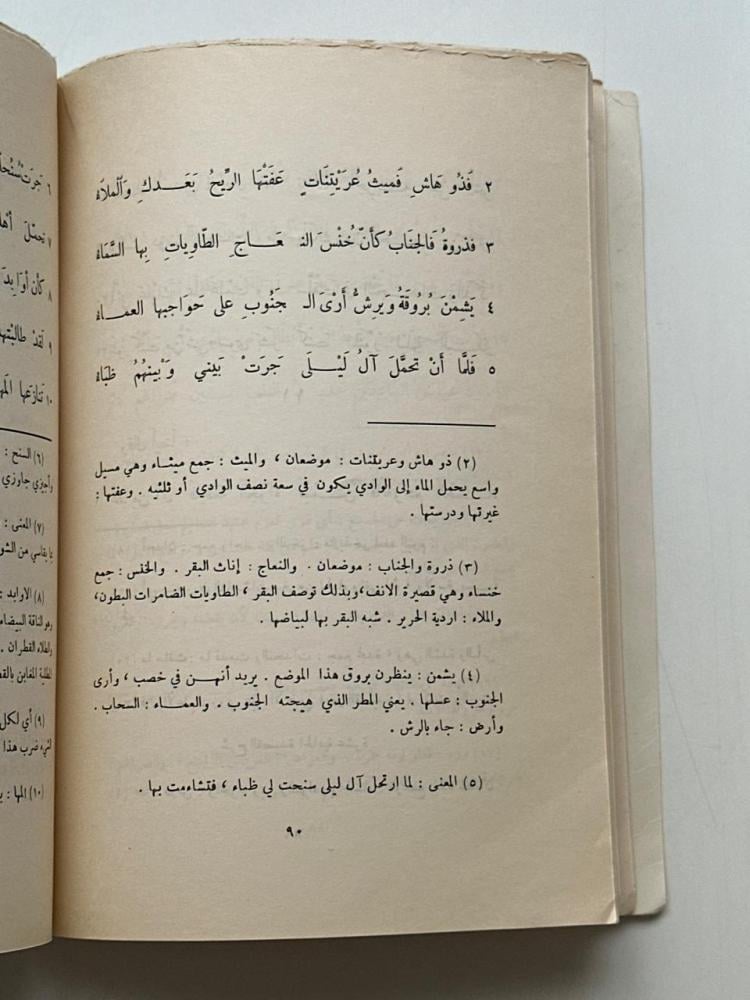 ٢ فَذُو هَاشٍ فَميثُ عُرَيْتِنَاتٍ عَفَتْهَا الرِّيحُ بَعَـدكِ وَالْمَلَاءُ
٣ فذروةُ فَالجنابُ كأنّ خُنْسَ النـ ـعَـاجِ الطّاوِياتِ بِها السَّمَاءُ
٤ يَشِمْنَ بُرُوقَهُ وَيَرِشُّ أَرْىَ الـ جَنُوبِ على حَوَاجِبِها العمـاءُ
٥ فَلَمَّا أَنْ تحمَّلَ آلُ لَيْـلَى جَرَتْ بَيْني وَبَيْنهُمُ ظبَاءُ
(٢) ذو هاش وعريتنات : موضعان ، والميث : جمع ميثـاء وهي مسيل
واسع يحمل الماء إلى الوادي يكون في سعة نصف الوادي أو ثلثيه . وعفتها :
غيرتها ودرستها .
(٣) ذروة والجناب : موضعان . والنعاج : إناث البقر . والخنس : جمع
خنساء وهي قصيرة الانف، وبذلك توصف البقر ، الطاويات الضامرات البطون،
والملاء : اردية الحرير . شبه البقر بها لبياضها .
(٤) يشمن : ينظرن بروق هذا الموضع . يريد أنهـن في خصب ، وأرى
الجنوب : عسلها . يعني المطر الذي هيجته الجنوب . والعمـاء : السحاب .
وأرض : جاء بالرش .
(٥) المعنى : لما ارتحل آل ليلى سنحت لي ظباء ، فتشاءمت بها .
٩٠
٦ جَرَتْ سُنُحاً
٧ تحمّل
٨ كأن أوَابِدَ
٩ لَقَدْ طالبْتها
١٠ تَنازَعها
(٦) السنح :
وأجيزي جاوزي
(٧) المعنى :
(٨) الاوابد :
وهو الناقة البيضاء
والطلاء القطران .
(٩) أي لكل
(١٠) المها :